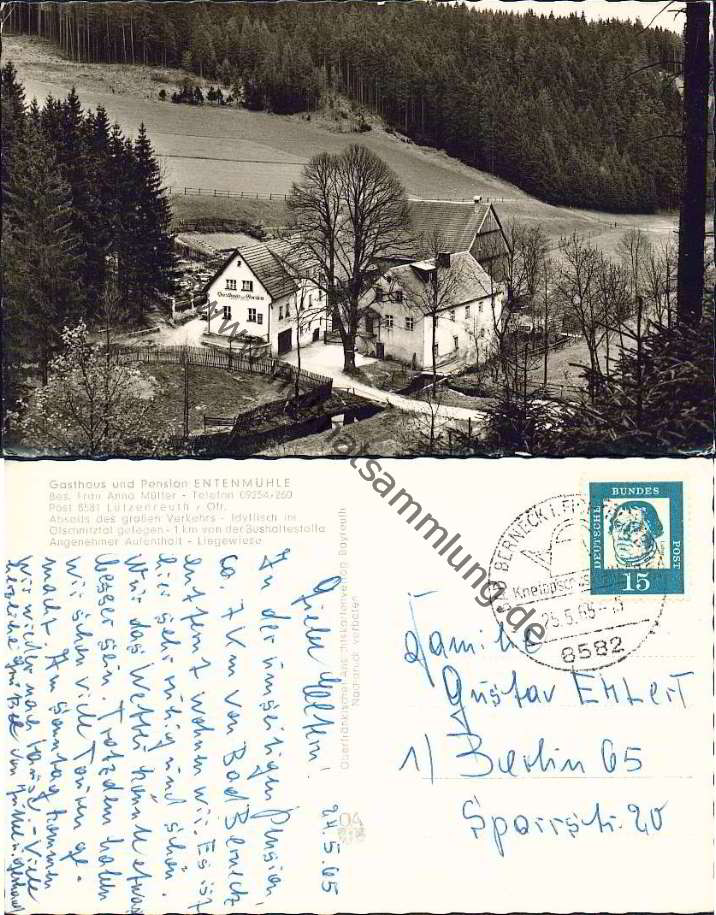 Gasthaus und Pension
www.heimatsammlung.de
Gasthaus und Pension ENTENMÜHLE
Bes. Frau Anna Müller - Telefon 09254/260
Post 8581 Lützenreuth / Ofr.
Abseits des großen Verkehrs - Idyllisch im
Ölschnitztal gelegen - 1 km von der Bushaltestelle
Angenehmer Aufenthalt - Liegewiese
24.5.65
Liebe Eltern,
In der umseitigen Pension,
ca. 7 km von Bad Berneck
entfernt wohnen wir. Es ist
hier sehr ruhig und schön.
Nur das Wetter könnte etwas
besser sein. Trotzdem haben
wir schon viele Touren ge-
macht. Am Sonntag kommen
wir wieder nach Hause. - Viele
herzliche Grüße
Oberfränkischer Ansichtskartenverlag Bayreuth
Nachdruck verboten
DEUTSCHE
BUNDES
POST
15
BERNECK I.
Kneipp
25.5.65
8582
Familie
Gustav Ehlert
1) Berlin 65
Sparrstr. 20